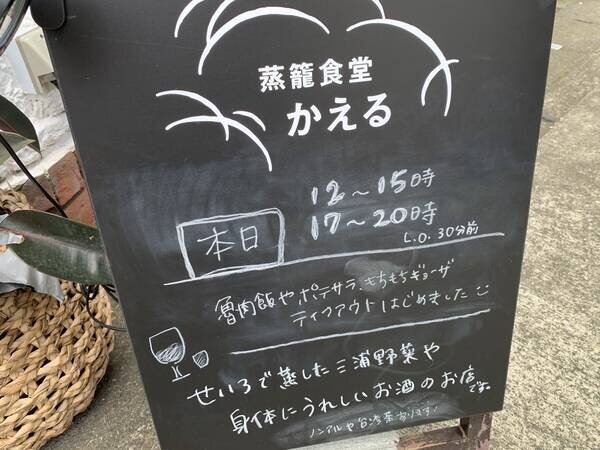 蒸籠食堂
かえる
本日
12～15時
17～20時
L.O. 30分前
魯肉飯やポテサラ、もちもちギョーザ
テイクアウトはじめました
せいろで蒸した三浦野菜や
身体にうれしいお酒のお店です。
ノンアルや台湾茶あります!